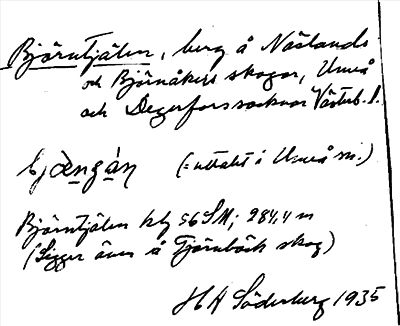 Björntjälen, berg å Näslands
och Björnåkers skogar, Umeå
och Degerfors socknar Västerb. l.
(= uttalet i Umeå sn.)
Björntjälen kbl 56 SM; 284,4 m
(Ligger även å Tjärnbäck skog)
H A Söderberg 1935